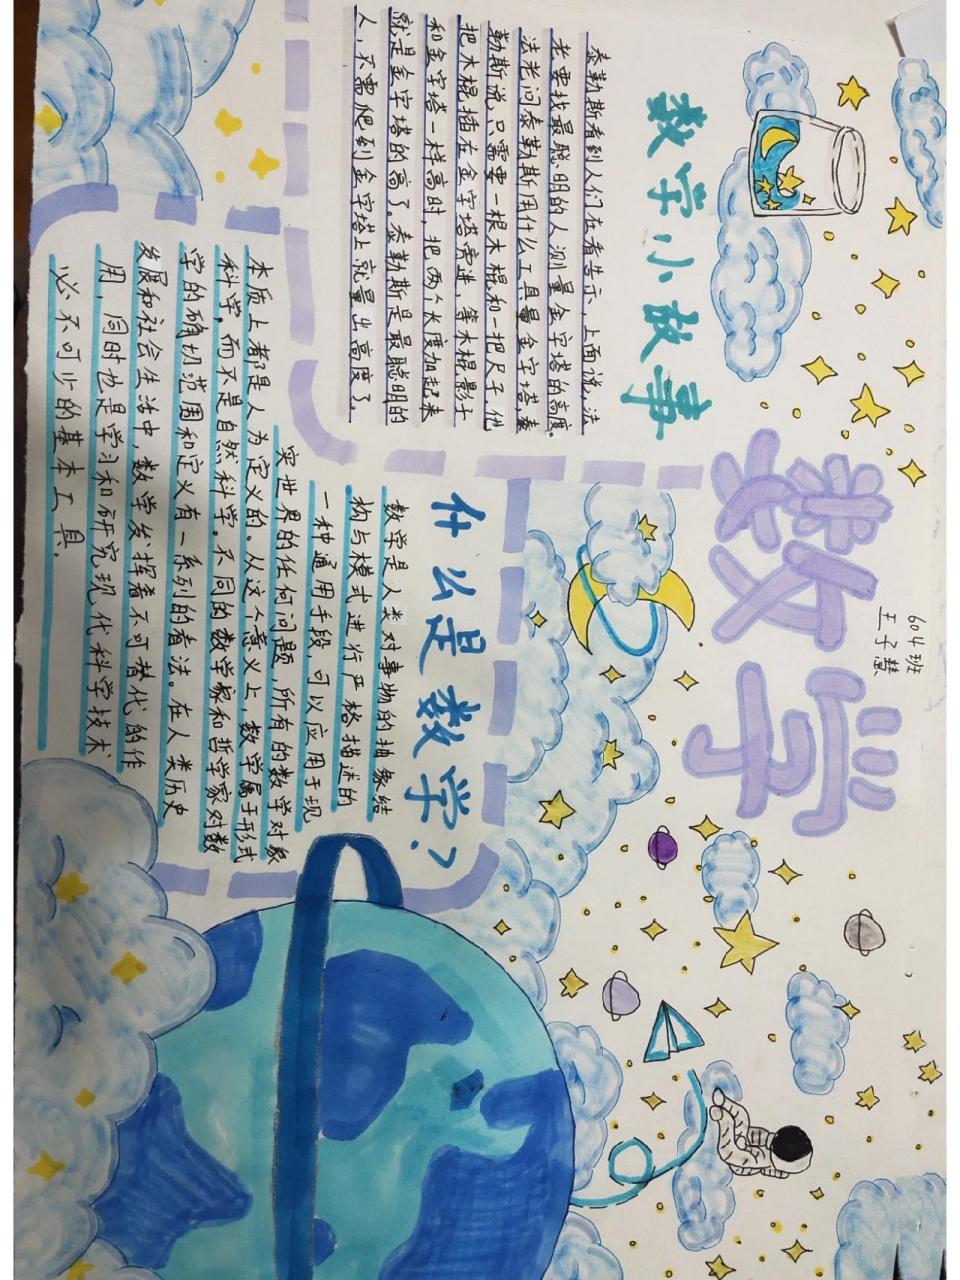 数学
604班
王子慧
数学小故事
泰勒斯看到人们在看告示,上面说,法
老要找最聪明的人测量金字塔的高度。
法老问泰勒斯用什么工具量金字塔,泰
勒斯说只需要一根木棍和一把尺子,他
把木棍插在金字塔旁进,等木棍影子
和金字塔一样高时,把两个长度加起来
就是金字塔的高了。泰勒斯是最聪明的
人,不需爬到金字塔上就量出高度了。
什么是数学?
数学是人类对事物的抽象结
构与模式进行严格描述的
一种通用手段,可以应用于现
实世界的任何问题,所有的数学对象
本质上都是人为定义的。从这个意义上,数学属于形式
科学,而不是自然科学。不同的数学家和哲学家对数
学的确切范围和定义有一系列的看法。在人类历史
发展和社会生活中,数学发挥着不可替代的作
用,同时也是学习和研究现代科学技术
必不可少的基本工具.